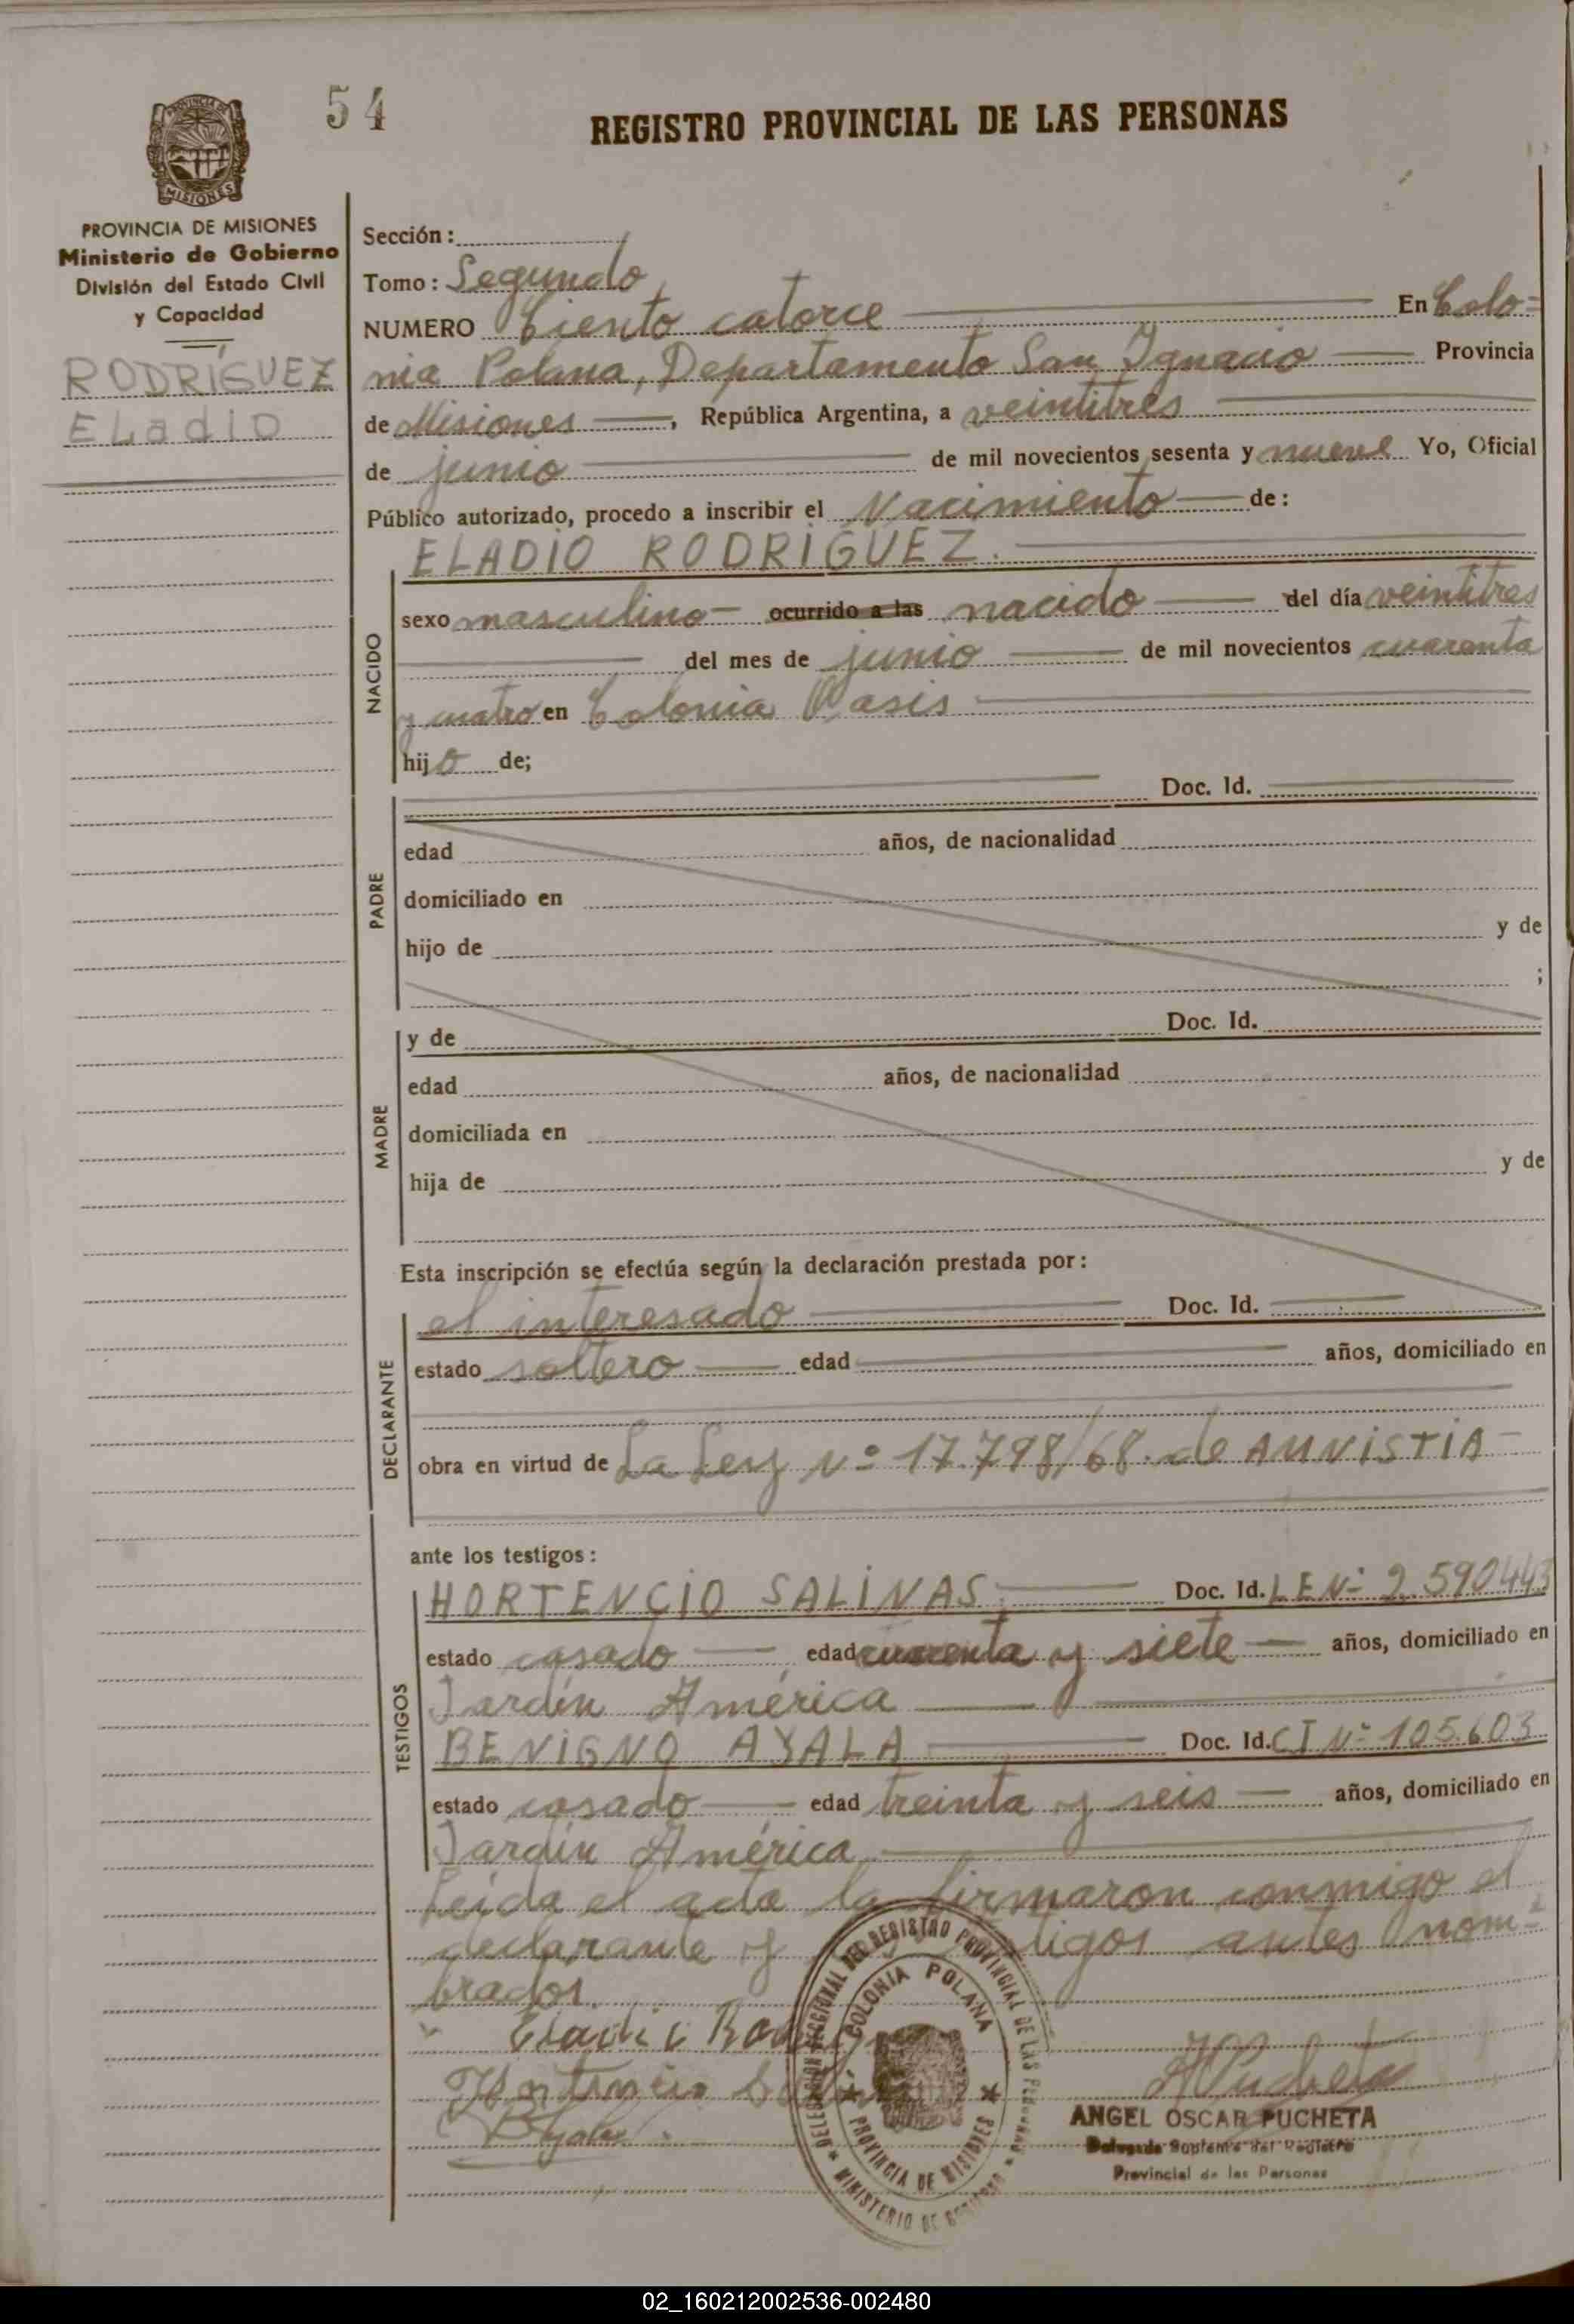 54
REGISTRO PROVINCIAL DE LAS PERSONAS
PROVINCIA DE MISIONES
MISIONES
PROVINCIA DE MISIONES
Ministerio de Gobierno
División del Estado Civil
y Capacidad
RODRÍGUEZ
ELadiO
Sección:
Tomo: Segundo
NUMERO Ciento catorce En Colo=
nia Polana, Departamento San Ignacio Provincia
de Misiones, República Argentina, a veintitres
de junio de mil novecientos sesenta y nueve Yo, Oficial
Público autorizado, procedo a inscribir el Nacimiento de:
ELADIO RODRÍGUEZ.
NACIDO
sexo masculino ocurrido a las nacido del día veintitres
del mes de junio de mil novecientos cuarenta
y cuatro en Colonia Oasis
hijo de;
PADRE
Doc. Id.
edad años, de nacionalidad
domiciliado en
hijo de y de
;
MADRE
y de Doc. Id.
edad años, de nacionalidad
domiciliada en
hija de y de
Esta inscripción se efectúa según la declaración prestada por:
DECLARANTE
el interesado Doc. Id.
estado soltero edad años, domiciliado en
obra en virtud de La Ley Nº 17.798/68. de AMNISTIA
ante los testigos:
TESTIGOS
HORTENCIO SALINAS Doc. Id. LE Nº 2.590443
estado casado edad cuarenta y siete años, domiciliado en
Jardín América
BENIGNO AYALA Doc. Id. CI Nº 105.603
estado casado edad treinta y seis años, domiciliado en
Jardín América
Leida el acta la firmaron conmigo el
declarante y antes nom=
brados.
Eladio
Hortencio
BAyala
DELEGACION SECCIONAL DEL REGISTRO PROVINCIAL DE LAS PERSONAS
COLONIA POLANA
PROVINCIA DE MISIONES
MINISTERIO DE GOBIERNO
APucheta
ANGEL OSCAR PUCHETA
Suplente del Registro
Provincial de las Personas
02_160212002536-002480